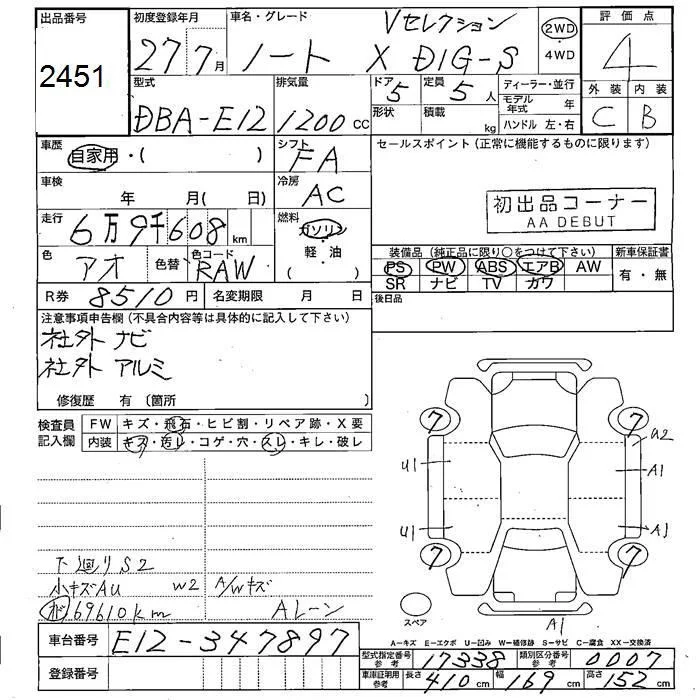 出品番号
2451
初度登録年月
27 7月
車名・グレード
ノート X DIG-S Vセレクション
2WD
・
4WD
評価点
4
外装 内装
C B
型式
DBA-E12
排気量
1200 CC
ドア
5
形状
定員
5 人
積載
kg
ディーラー・並行
モデル年式 年
ハンドル 左・右
車歴
自家用・( )
シフト
FA
セールスポイント (正常に機能するものに限ります)
車検
年 月( 日)
冷房
AC
初出品コーナー
AA DEBUT
走行
6万9千608 km
燃料
ガソリン
・
軽・油
( )
色
アオ
色替
色コード
RAW
装備品 (純正品に限り○をつけて下さい)
PS PW ABS エアB AW
SR ナビ TV カワ
新車保証書
有・無
R券 8510 円
名変期限 月 日
後日品
注意事項申告欄 (不具合内容等は具体的に記入して下さい)
社外 ナビ
社外 アルミ
修復歴 有 〔箇所 〕
検査員
記入欄
FW キズ・飛石・ヒビ割・リペア跡・X要
内装 キズ・汚レ・コゲ・穴・スレ・キレ・破レ
下廻りS2
小キズAU W2 A/Wキズ
69610km Aレーン
7 7
U2
U1 A1
U1 A1
7 7
スペア
A1
A-キズ E-エクボ U-凹み W-補修跡 S-サビ C-腐食 XX-交換済
車台番号 E12-347897
登録番号
型式指定番号
参考
17338
類別区分番号
参考
0007
車庫証明用
参考
長さ 410 cm 幅 169 cm 高さ 152 cm